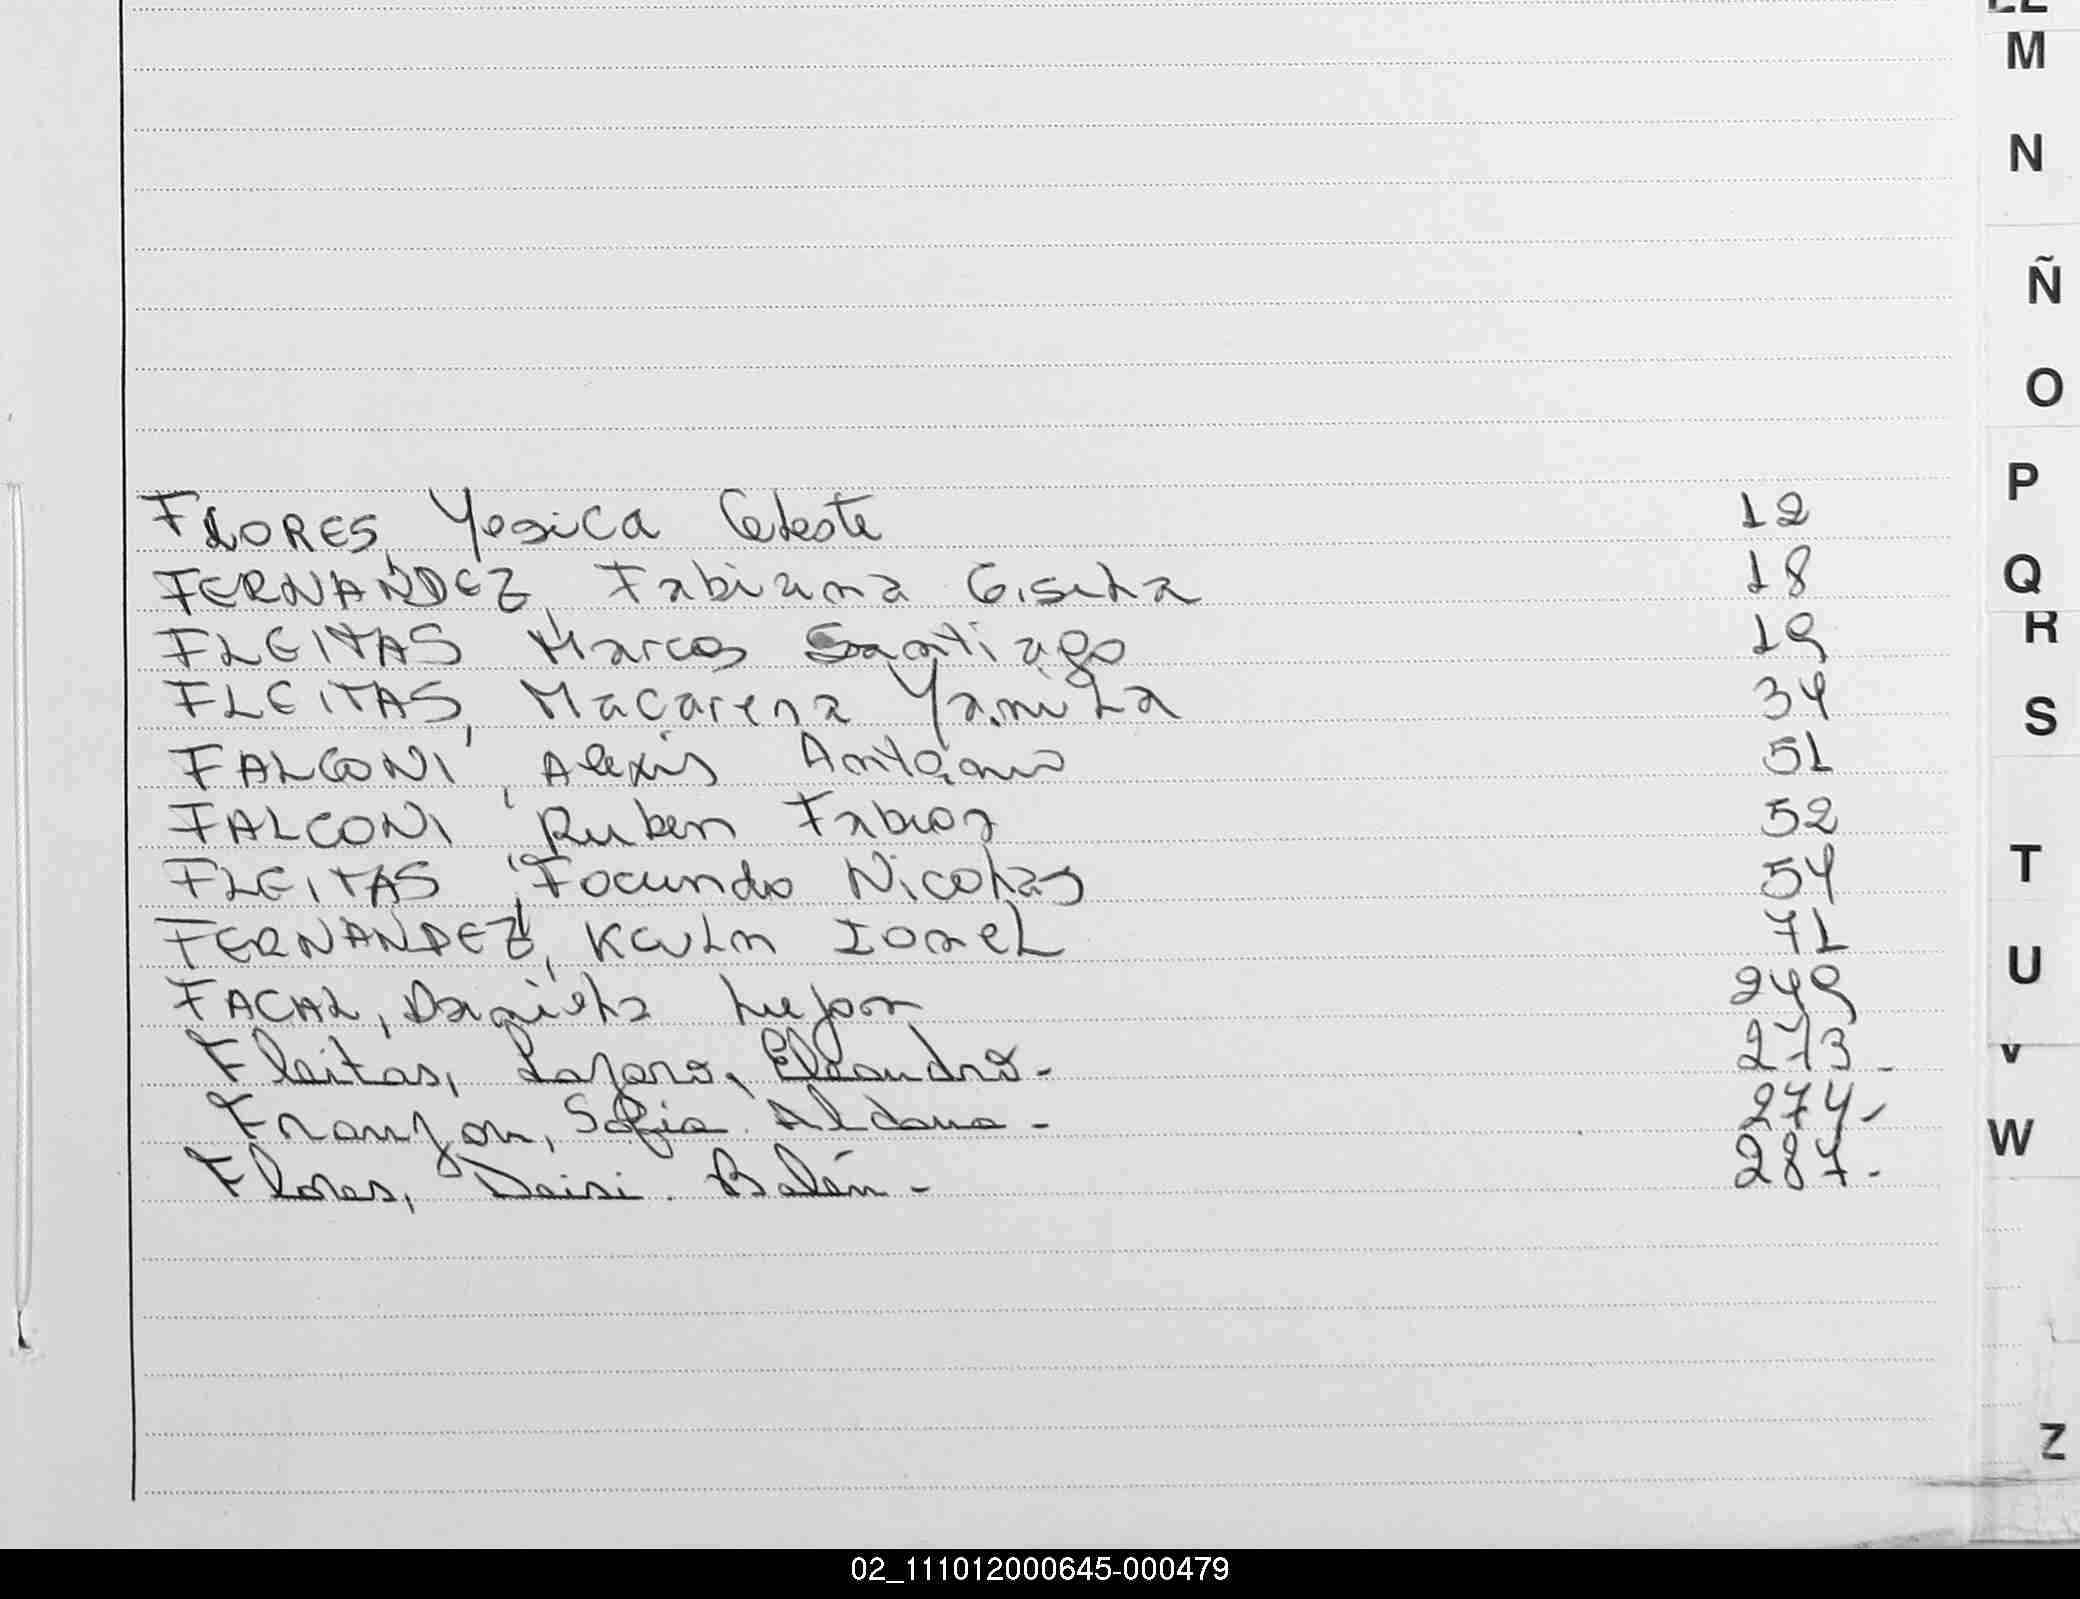 FLORES, Yesica Celeste 12
FERNANDEZ, Fabiana Gisela 18
FLEITAS Marcos Santiago 19
FLEITAS, Macarena Yamila 34
FALCONI, Alexis Antonio 51
FALCONI, Ruben Fabian 52
FLEITAS, Facundo Nicolas 54
FERNANDEZ, Kevin Ionel 71
FACAL, Daniela Lujan 249
Fleitas, Lazaro, Eleandro- 273-
Franzon, Sofia Aldana- 274-
Flores, Deisi Belén- 287-
LL
M
N
Ñ
O
P
Q
R
S
T
U
V
W
Z
02_111012000645-000479